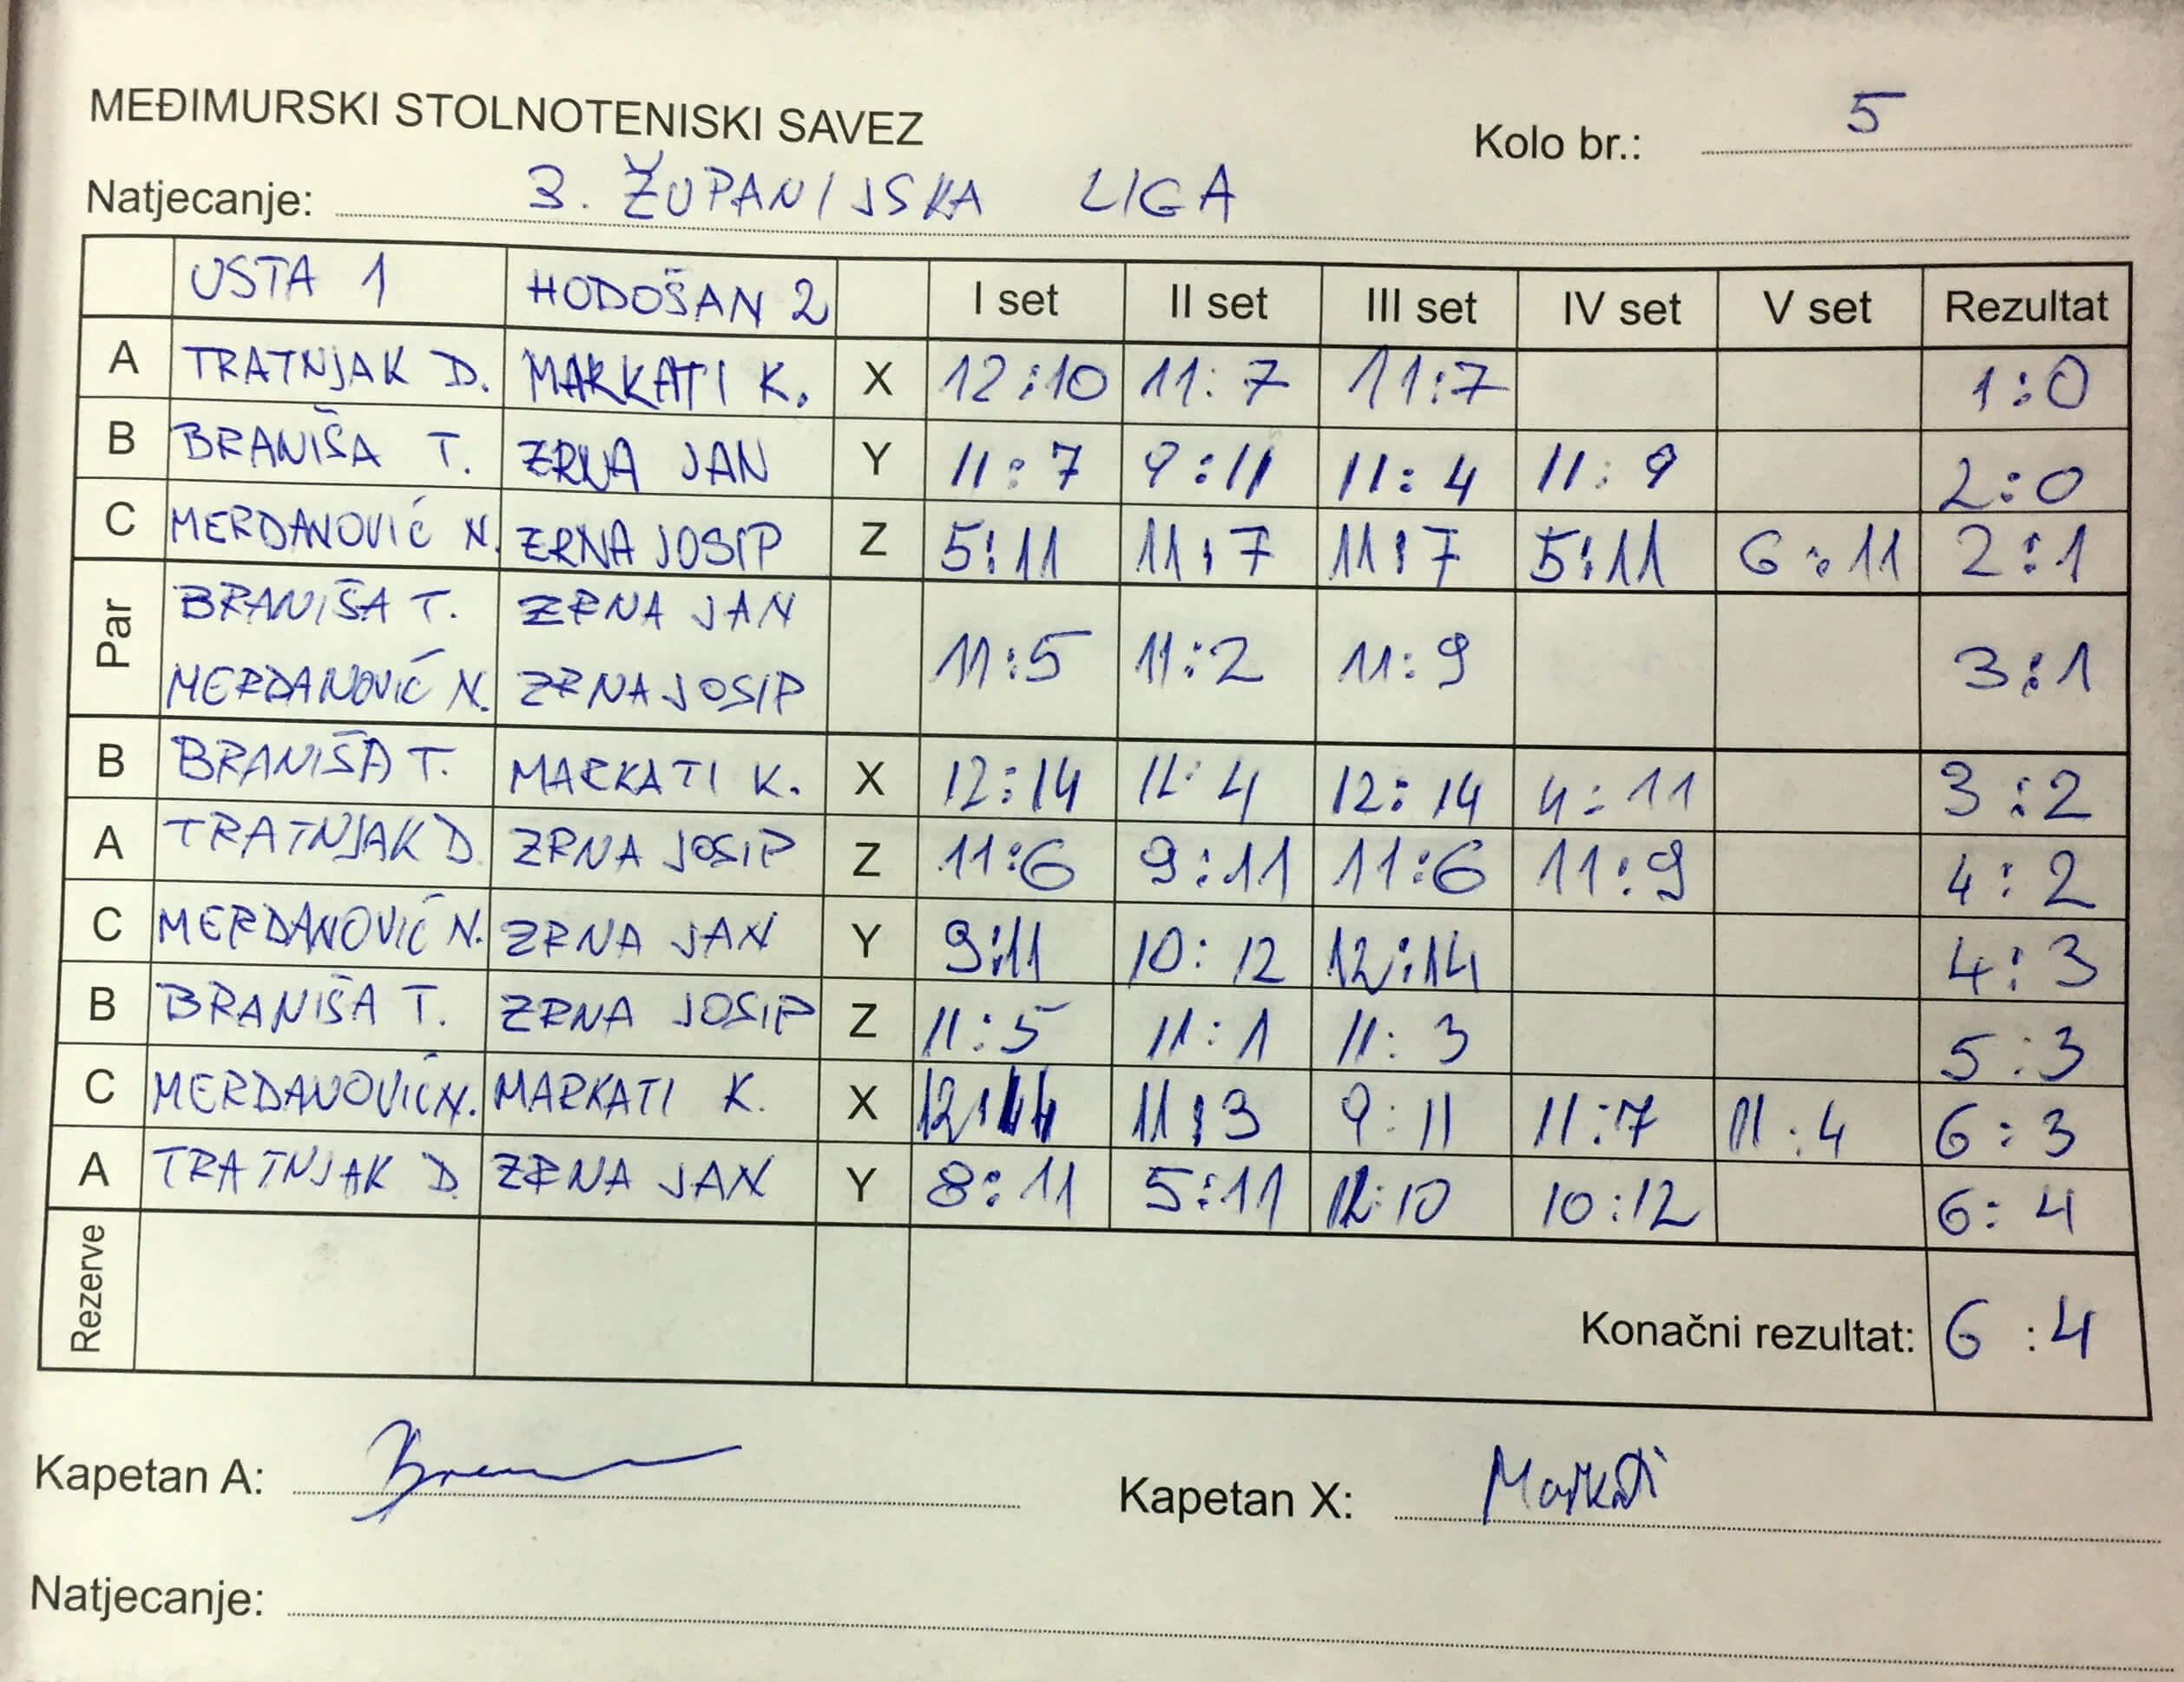 MEĐIMURSKI STOLNOTENISKI SAVEZ
Kolo br.: 5
Natjecanje: 3. ŽUPANIJSKA LIGA
USTA 1 HODOŠAN 2 I set II set III set IV set V set Rezultat
A TRATNJAK D. MARKATI K. X 12:10 11:7 11:7 1:0
B BRANIŠA T. ZRNA JAN Y 11:7 9:11 11:4 11:9 2:0
C MERDANOVIĆ N. ZRNA JOSIP Z 5:11 11:7 11:7 5:11 6:11 2:1
Par BRANIŠA T. ZRNA JAN
MERDANOVIĆ N. ZRNA JOSIP 11:5 11:2 11:9 3:1
B BRANIŠA T. MARKATI K. X 12:14 11:4 12:14 4:11 3:2
A TRATNJAK D. ZRNA JOSIP Z 11:6 9:11 11:6 11:9 4:2
C MERDANOVIĆ N. ZRNA JAN Y 9:11 10:12 12:14 4:3
B BRANIŠA T. ZRNA JOSIP Z 11:5 11:1 11:3 5:3
C MERDANOVIĆ N. MARKATI K. X 12:14 11:3 9:11 11:7 11:4 6:3
A TRATNJAK D. ZRNA JAN Y 8:11 5:11 12:10 10:12 6:4
Rezerve Konačni rezultat: 6:4
Kapetan A: Kapetan X: Markati
Natjecanje: